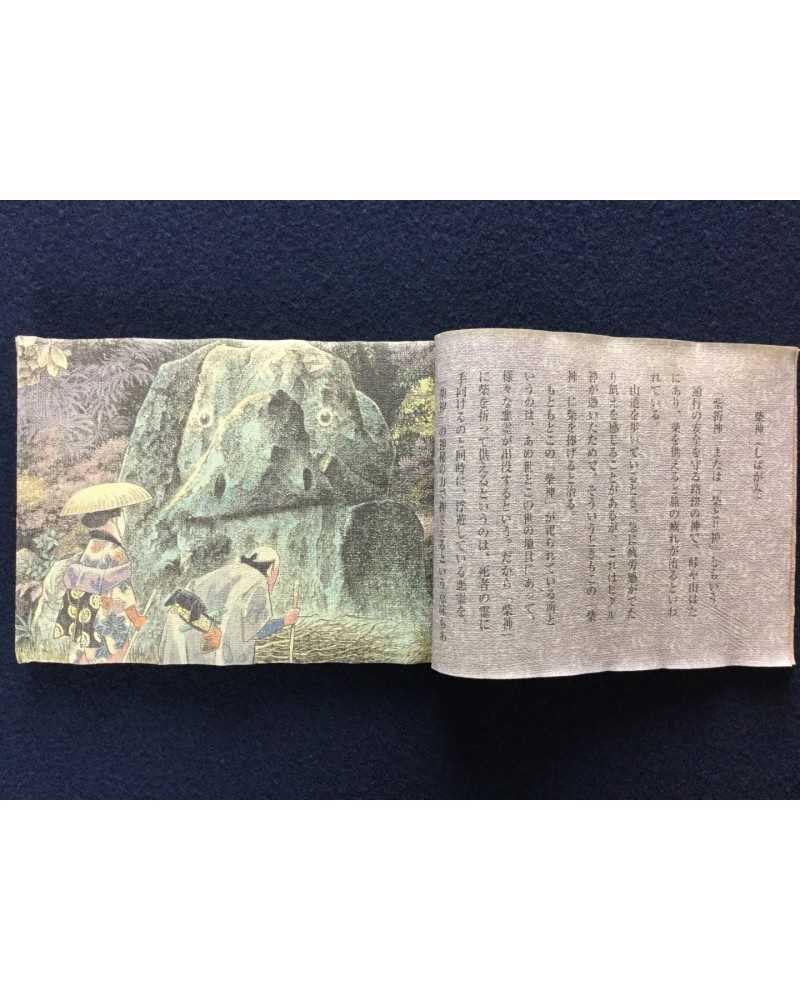 柴神（しばがみ）
「柴折神」または「柴とり神」ともいう。
通行の安全を守る路傍の神で、峠や山ばた
にあり、柴を供えると旅の疲れが治るといわ
れている。
山道を歩いているとき、急に疲労感がでた
り飢えを感じることがあるが、これはヒダル
神が憑いたためで、そういうときもこの「柴
神」に柴を捧げると治る。
もともとこの「柴神」が祀られている所と
いうのは、あの世とこの世の境目にあって、
様々な悪霊が出没するという。だから「柴神」
に柴を折って供えるというのは、死者の霊に
手向けるのと同時に、浮遊している悪霊を、